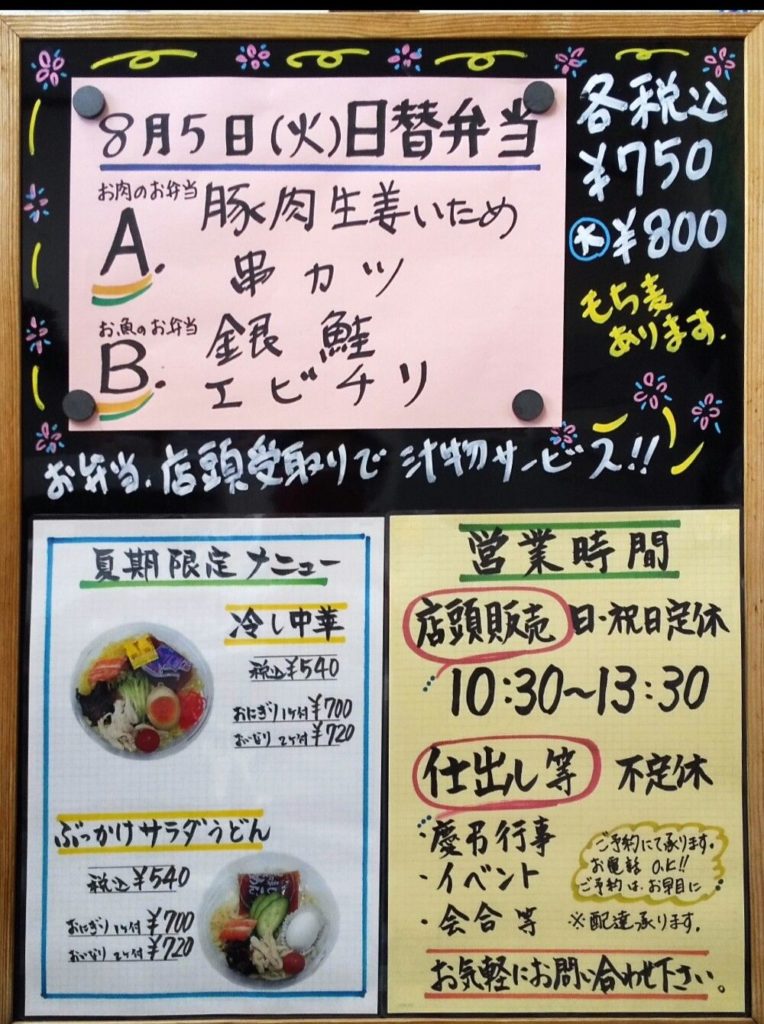 8月5日(火)日替弁当
お肉のお弁当
A. 豚肉生姜いため
串カツ
お魚のお弁当
B. 銀鮭
エビチリ
各税込
¥750
大 ¥800
もち麦
あります.
お弁当、店頭受取りで 汁物サービス!!
夏期限定メニュー
冷し中華
税込¥540
おにぎり1ケ付¥700
おいなり2ケ付¥720
ぶっかけサラダうどん
税込¥540
おにぎり1ケ付¥700
おいなり2ケ付¥720
営業時間
店頭販売 日・祝日定休
10:30〜13:30
仕出し等 不定休
・慶弔行事
・イベント
・会合等
ご予約にて承ります。
お電話 O.K!!
ご予約は、お早目に
※配達承ります。
お気軽にお問い合わせ下さい。